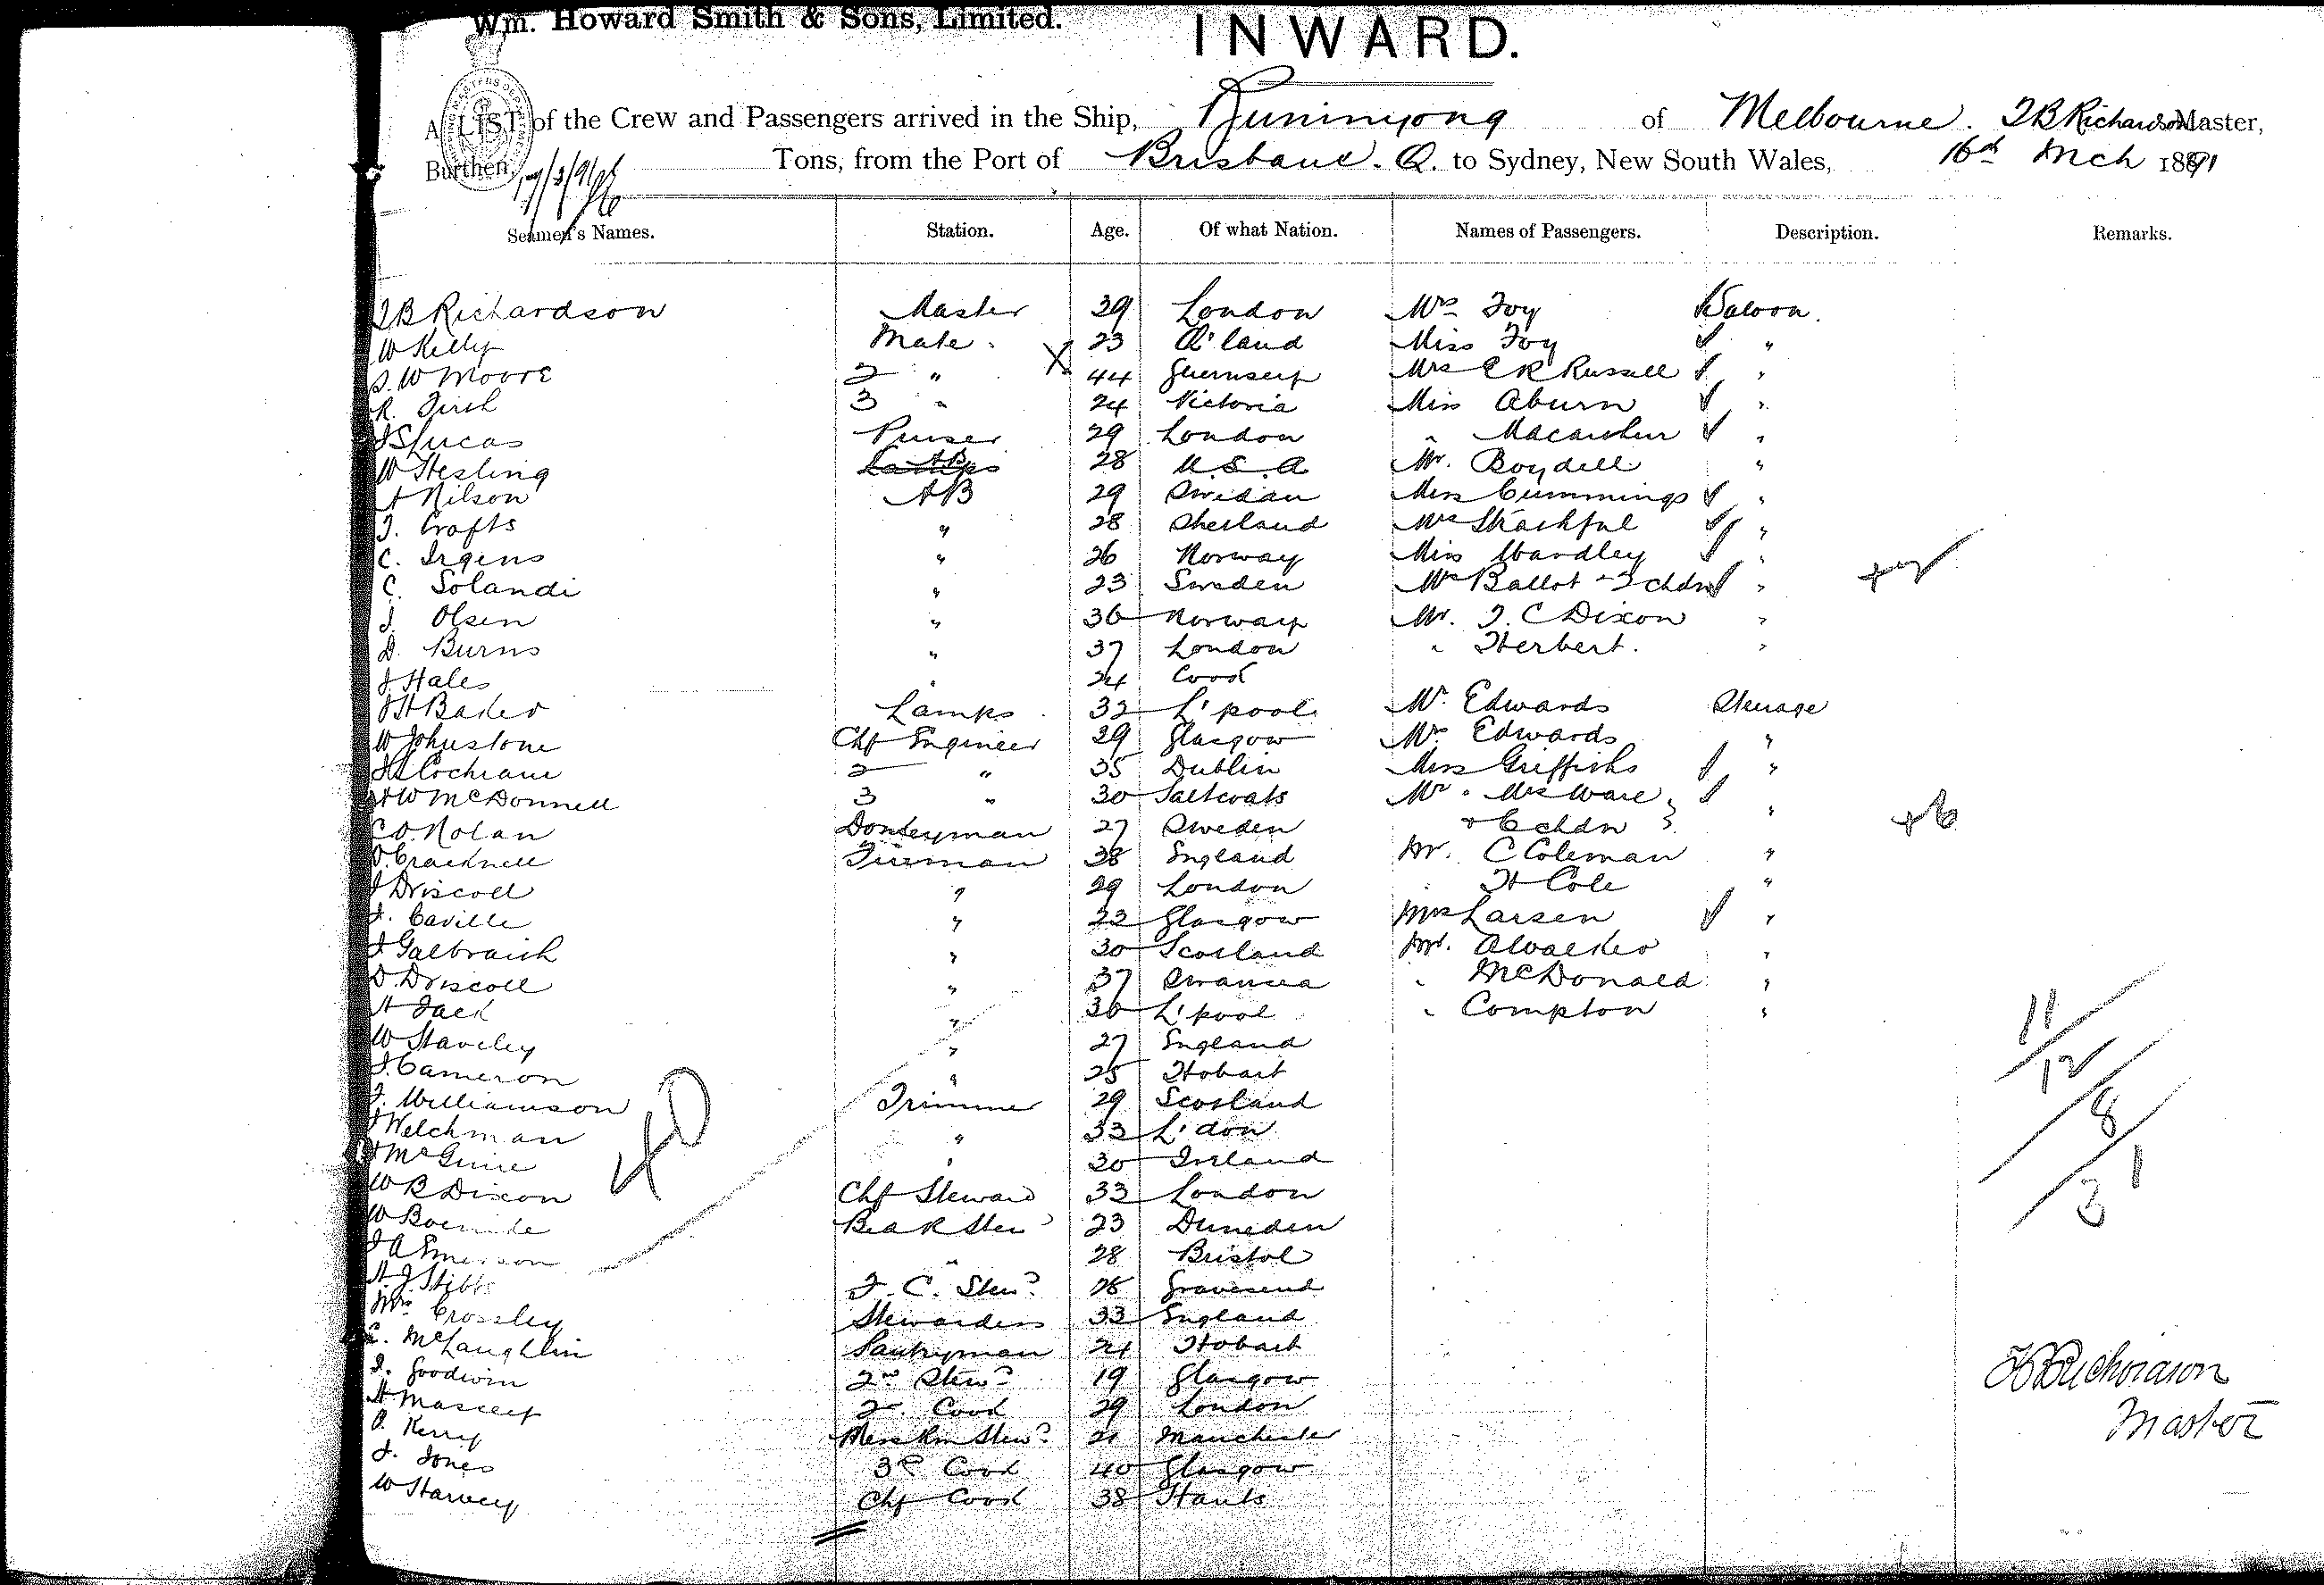 Wm. Howard Smith & Sons, Limited.
INWARD.
A LIST of the Crew and Passengers arrived in the Ship, Buninyong of Melbourne. T B Richardson Master,
Burthen, Tons, from the Port of Brisbane. Q. to Sydney, New South Wales, 16th Mch 1891
17/3/91
Seamen's Names. Station. Age. Of what Nation. Names of Passengers. Description. Remarks.
T B Richardson Master 39 London Mrs Foy Saloon.
W Kelly Mate. 23 Q'land Miss Foy "
S. W Moore 2 " X 44 Guernsey Mrs E R Russell "
R. Firth 3 " 24 Victoria Miss Aburn "
J S Lucas Purser 29 London " Macarthur "
W Hesling AB 28 U.S.A Mr. Boydell "
A Nilson AB 29 Sweden Miss Cummings "
J. Crofts " 28 Shetland Mrs "
C. Irgens " 26 Norway Miss Wardley "
C. Solandi " 23 Sweden Mrs Ballot 2 chdn " +2
J. Olsen " 36 Norway Mr. T. C Dixon "
D. Burns " 37 London " Herbert. "
J Hales " 24 Cork
J H Baker Lamps 32 L'pool Mr. Edwards Steerage
W Johnstone Chf Engineer 39 Glasgow Mrs Edwards "
Cochrane 2 " 35 Dublin Miss Griffiths "
W McDonnell 3 " 30 Saltcoats Mr. Mrs Ware "
C O. Nolan Donkeyman 27 Sweden + 6 chdn } +6
Cracknell Fireman 38 England Mr. C Coleman "
J Driscoll " 29 London " H Cole "
J. Caville " 23 Glasgow Mrs Larsen "
J Galbraith " 30 Scotland Mr. A Walker "
D. Driscoll " 37 Swansea " McDonald "
H Jack " 30 L'pool " Compton "
W Staveley " 27 England
J. Cameron " 25 Hobart
J. Williamson Trimmer 29 Scotland
J Welchman " 33 L'don
McGuire " 30 Ireland
W R Dixon Chf Steward 33 London
W B&R Stew 23 Dunedin
J A Emerson " 28 Bristol
H. J. Stibbs F. C. Stewd 28 Gravesend
Mrs Crossley Stewardess 33 England
C. McLaughlin Pantryman 24 Hobart
J. Goodwin 2nd Stewd 19 Glasgow
H. Massey 2. Cook 29 London
Kerry Mess Rm Stewd 21 Manchester
J. Jones 3rd Cook 40 Glasgow
W Harvey Chf Cook 38 Hants
40
11
12
8
1
3
T B Richardson
Master